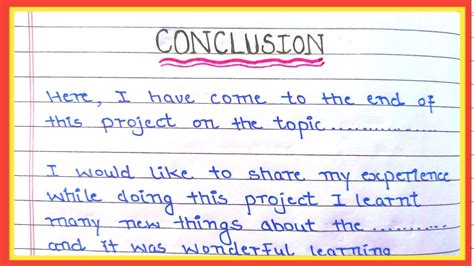 CONCLUSION
Here, I have come to the end of
this project on the topic..............
I would like to share my experience
while doing this project I learnt
many new things about the ...........
and it was wonderful learning